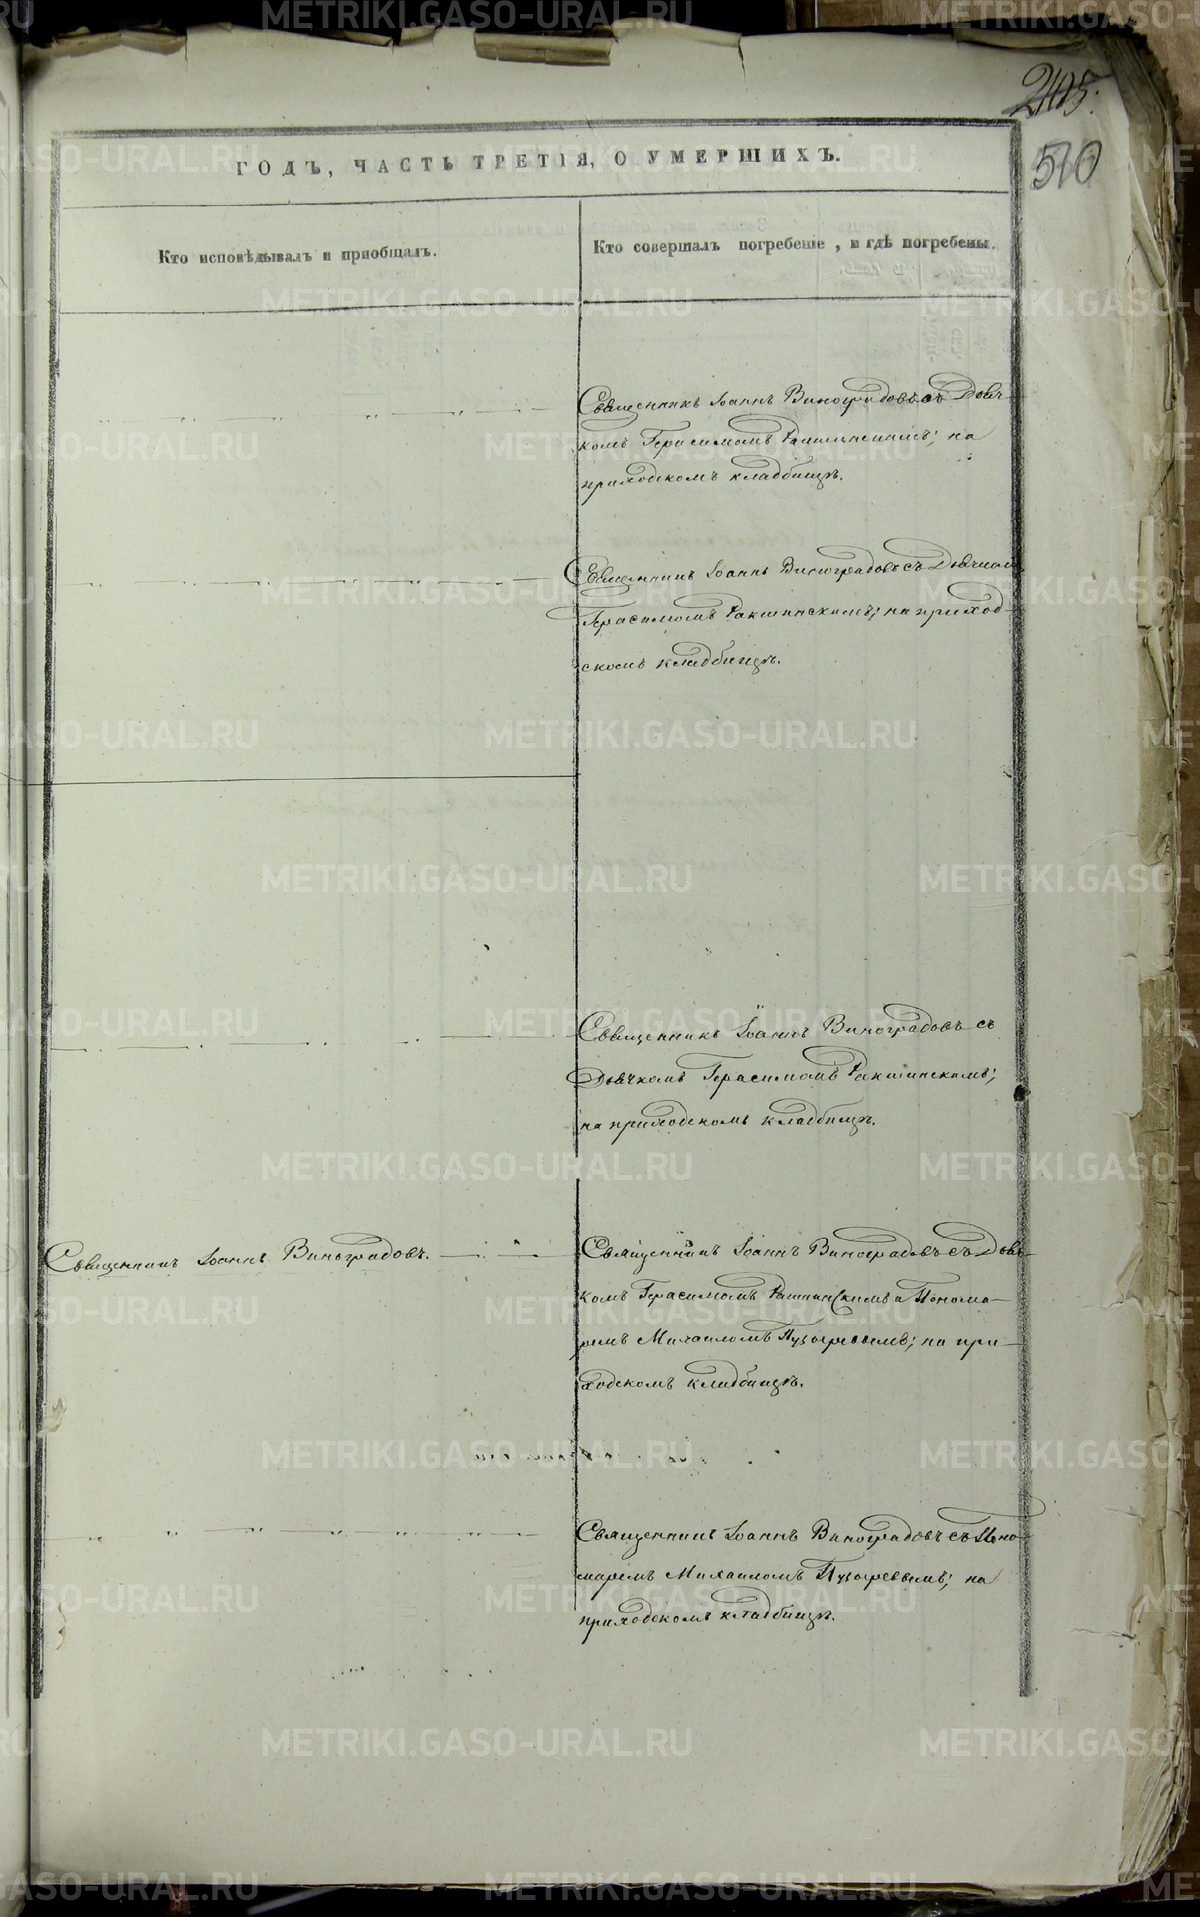 510
ГОДЪ, ЧАСТЬ ТРЕТІЯ, О УМЕРШИХЪ.
Кто исповѣдывалъ и приобщалъ.
Кто совершалъ погребеніе, и гдѣ погребены.
Священникъ Іоаннъ Виноградовъ съ Дьяч-
комъ Герасимомъ Ракшинскимъ; на
приходскомъ кладбищѣ.
Священникъ Іоаннъ Виноградовъ съ Дьячкомъ
Герасимомъ Ракшинскимъ; на приход-
скомъ кладбищѣ.
Священникъ Іоаннъ Виноградовъ съ
Дьячкомъ Герасимомъ Ракшинскимъ;
на приходскомъ кладбищѣ.
Священникъ Іоаннъ Виноградовъ.
Священникъ Іоаннъ Виноградовъ съ Дьяч-
комъ Герасимомъ Ракшинскимъ и Понома-
ремъ Михаиломъ Пузыревымъ; на при-
ходскомъ кладбищѣ.
Священникъ Іоаннъ Виноградовъ съ Поно-
маремъ Михаиломъ Пузыревымъ; на
приходскомъ кладбищѣ.
METRIKI.GASO-URAL.RU